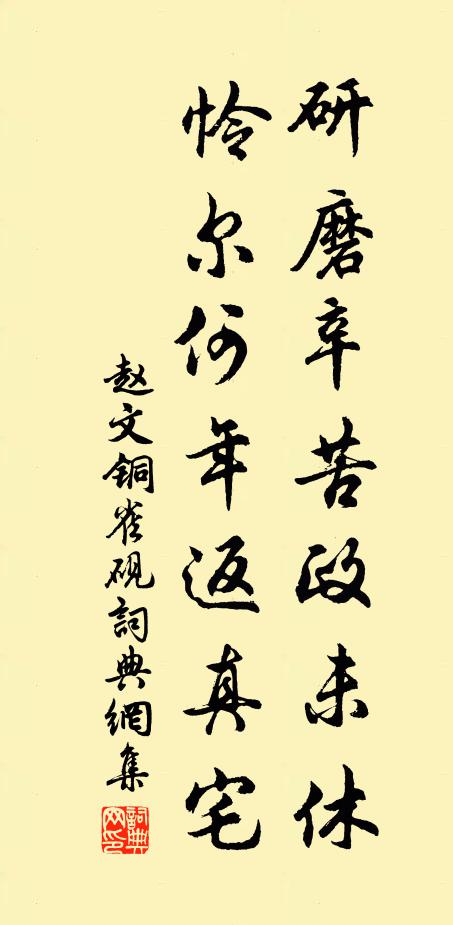 研磨辛苦政未休
怜尔何年返真宅
赵文铜雀砚詞典網集
詞典
网印